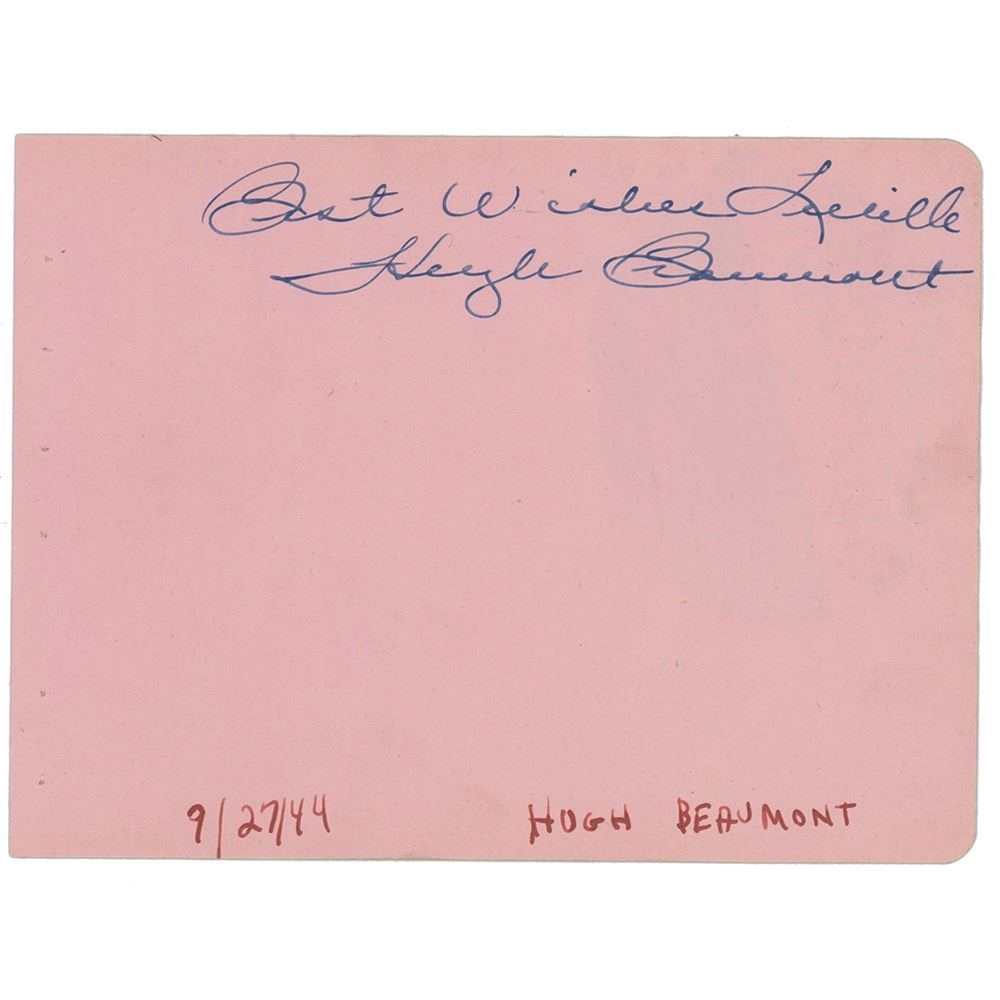 Best Wishes Lucille
Hugh Beaumont
9/27/44 HUGH BEAUMONT